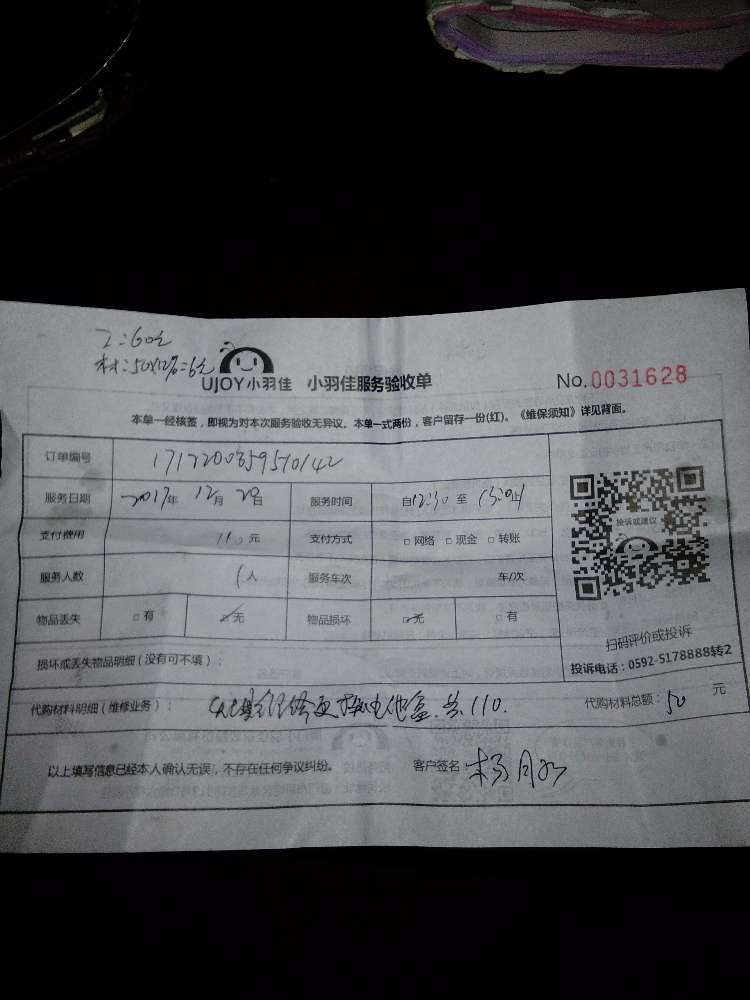 工:60元
材:50×12%=6元
UJOY小羽佳 小羽佳服务验收单 No.0031628
本单一经核签，即视为对本次服务验收无异议。本单一式两份，客户留存一份(红)。《维保须知》详见背面。
订单编号
服务日期 2017年 12月 20日 服务时间 自12:30 至 13:20止
支付费用 110元 支付方式 □ 网络 □ 现金 □ 转账
服务人数 1人 服务车次 车/次
物品丢失 □ 有 ☑无 物品损坏 ☑无 □ 有
投诉或建议
扫码评价或投诉
投诉电话：0592-5178888转2
损坏或丢失物品明细 (没有可不填)：
代购材料明细 (维修业务)： 更换电池盒.共110. 代购材料总额：50 元
以上填写信息已经本人确认无误，不存在任何争议纠纷。 客户签名：杨月